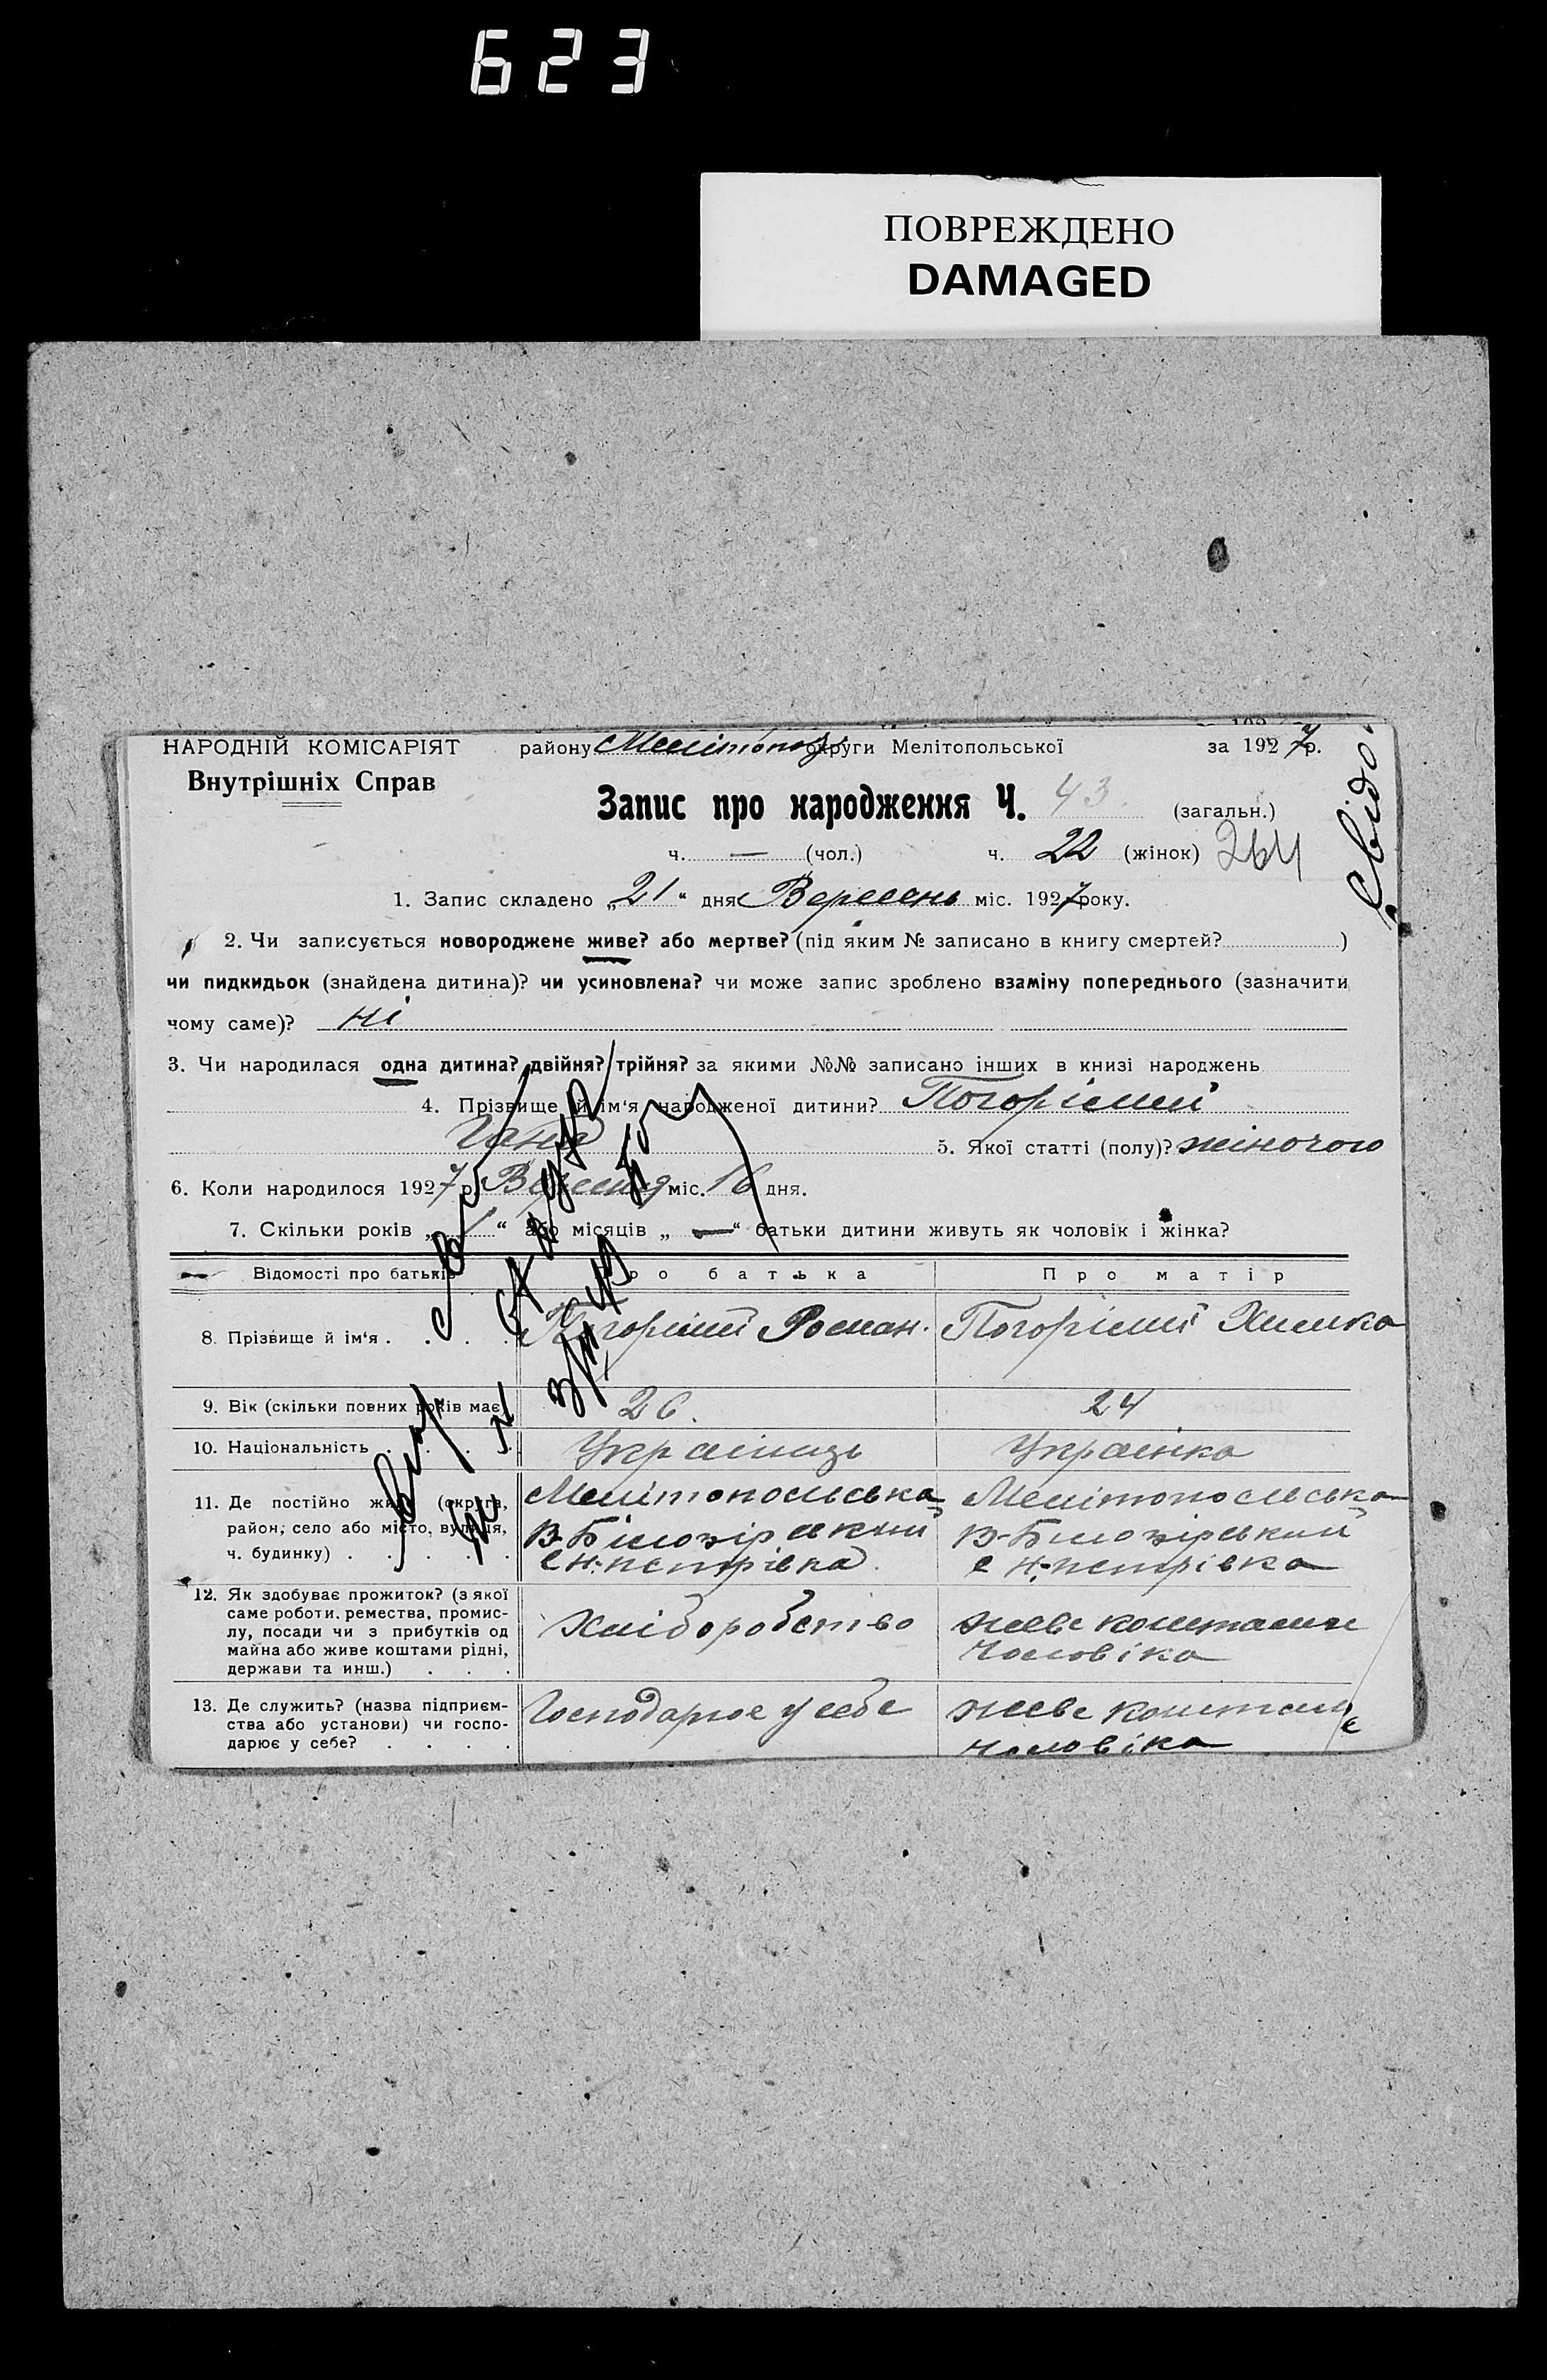 623
ПОВРЕЖДЕНО
DAMAGED
НАРОДНІЙ КОМІСАРІЯТ району Мелітопол округи Мелітопольської за 1927 р.
Внутрішніх Справ
Запис про народження Ч. 43 (загальн.)
ч. — (чол.) ч. 22 (жінок) 264
Свідо
1. Запис складено „21“ дня Вересень міс. 1927 року.
2. Чи записується новороджене живе? або мертве? (під яким № записано в книгу смертей? )
чи пидкидьок (знайдена дитина)? чи усиновлена? чи може запис зроблено взаміну попереднього (зазначити
чому саме)? ні
3. Чи народилася одна дитина? двійня? трійня? за якими №№ записано інших в книзі народжень
4. Прізвище й ім‘я народженої дитини? Погоріший
Гана 5. Якої статті (полу)? жіночого
6. Коли народилося 1927 р. Вересня міс. 16 дня.
7. Скільки років „1“ або місяців „—“ батьки дитини живуть як чоловік і жінка?
Відомості про батьків Про батька Про матір
8. Прізвище й ім‘я . . . . Погоріший Роман. Погоріший Химка
9. Вік (скільки повних років має) 26. 24
10. Національність . . . . Українець Українка
11. Де постійно живе (округа, Мелітопольська Мелітопольська
район, село або місто, вулиця, В-Білозірський В-Білозірський
ч. будинку) . . . . . с Н-петрівка с Н-петрівка
12. Як здобуває прожиток? (з якої
саме роботи, ремества, промис- Хліборобство живе коштами
лу, посади чи з прибутків од чоловіка
майна або живе коштами рідні,
держави та инш.) . . .
13. Де служить? (назва підприєм- Господарює у себе живе коштами
ства або установи) чи госпо- чоловіка
дарює у себе? . . . .